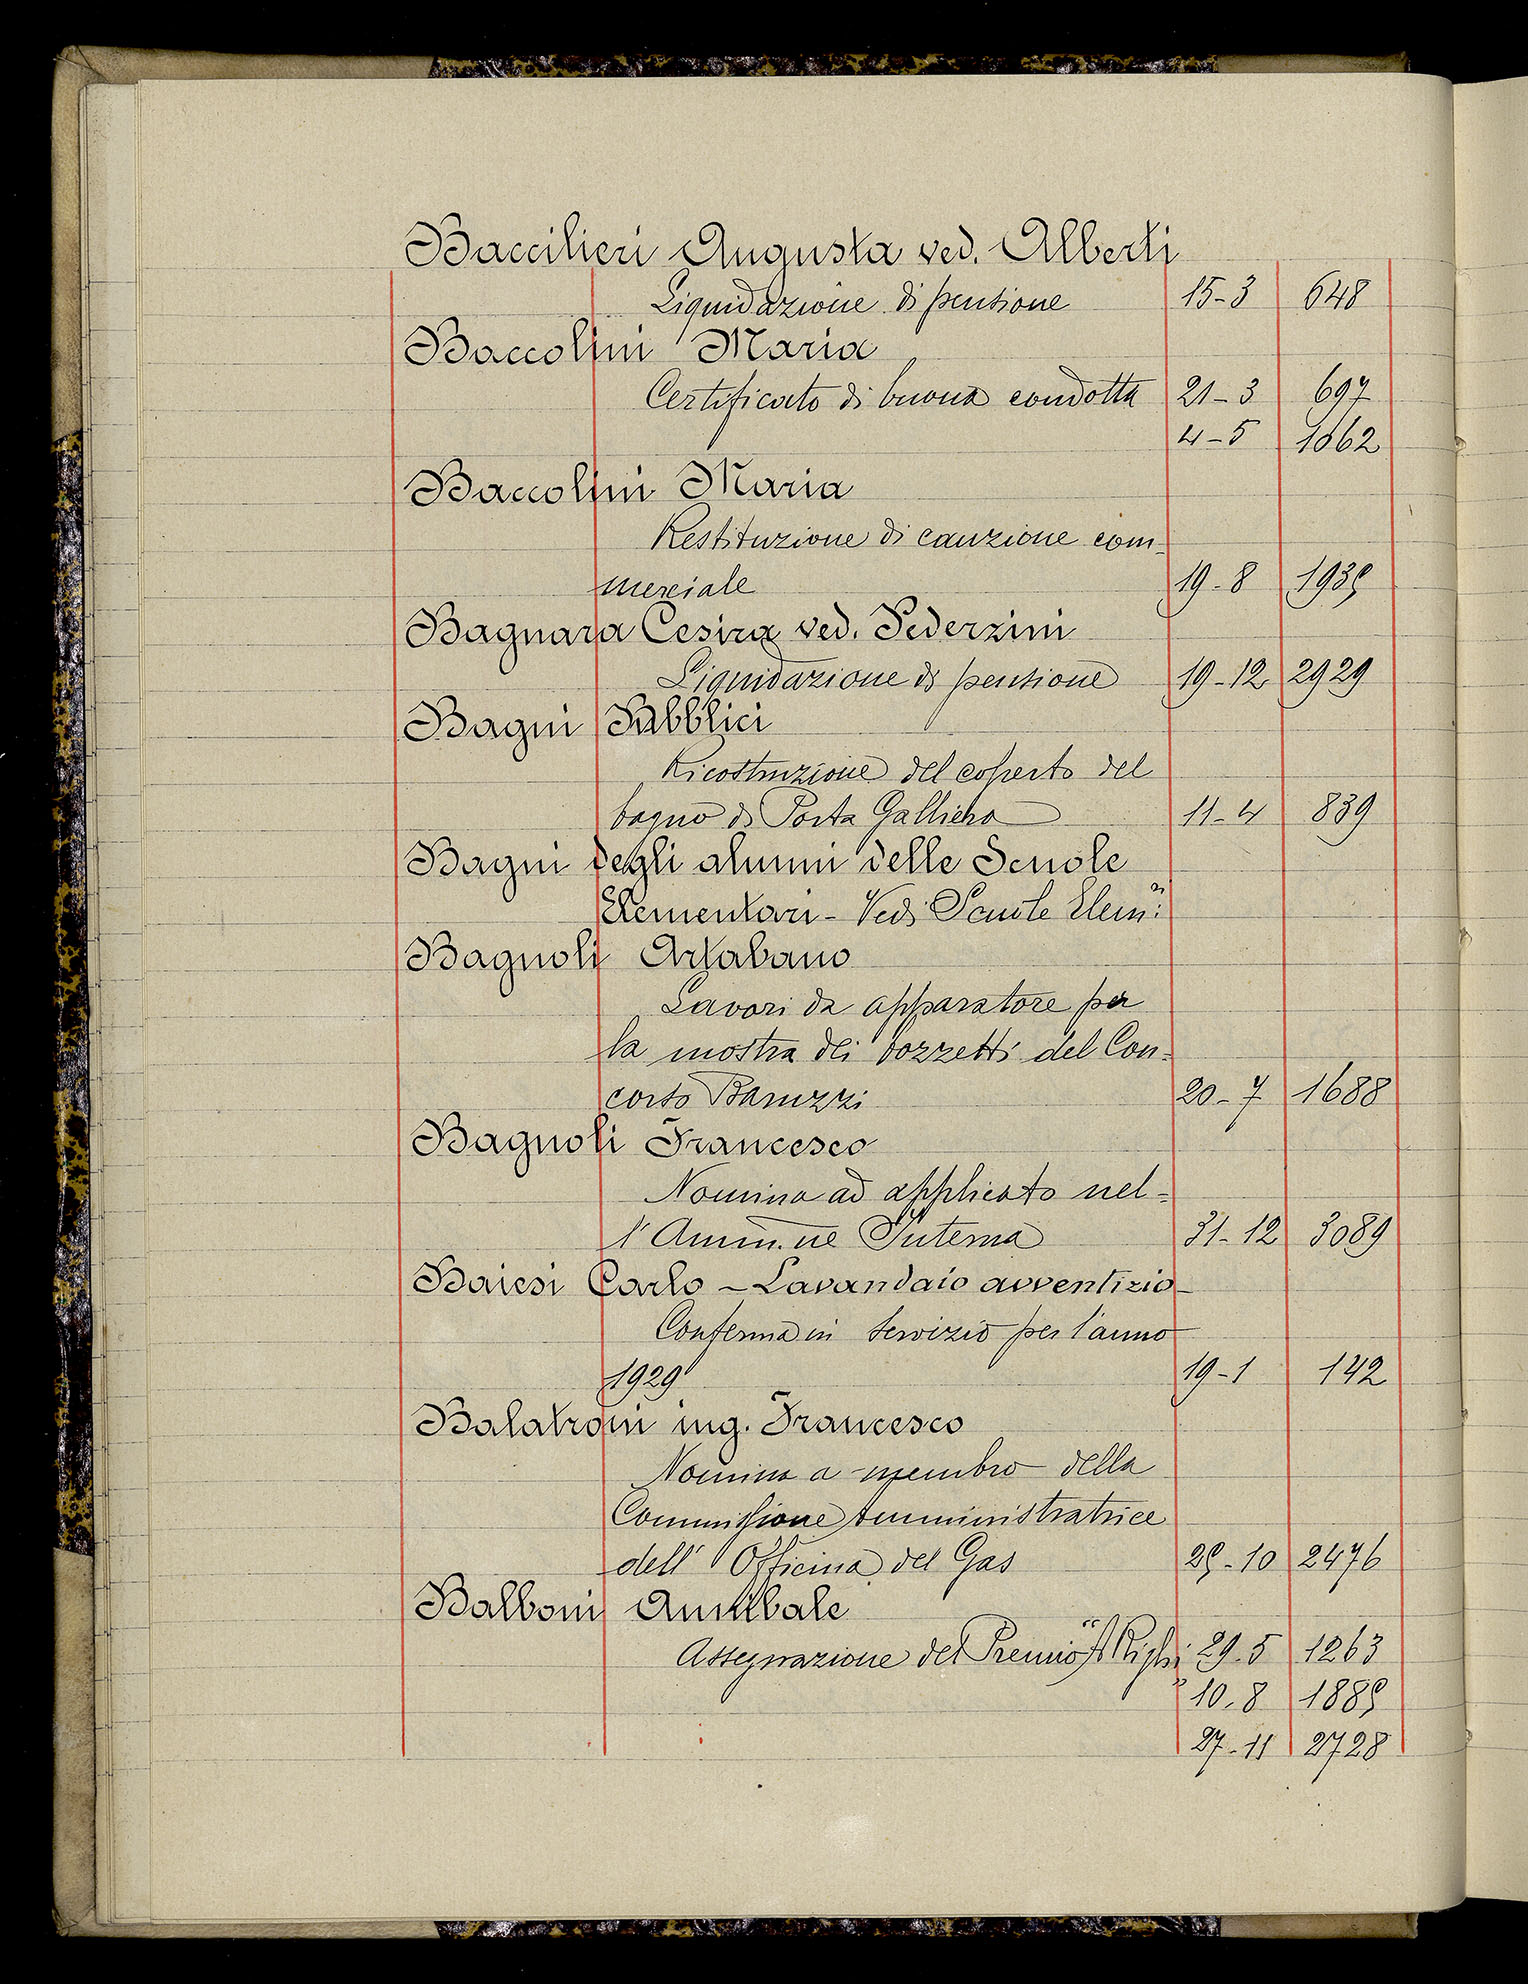 Baccilieri Augusta ved. Alberti
Liquidazione di pensione 15-3 648
Baccolini Maria
Certificato di buona condotta 21-3 697
4-5 1062
Baccolini Maria
Restituzione di cauzione com-
merciale 19-8 1935
Bagnara Cesira ved. Pederzini
Liquidazione di pensione 19-12 2929
Bagni Pubblici
Ricostruzione del coperto del
bagno di Porta Galliera 11-4 839
Bagni degli alunni delle Scuole
Elementari - Vedi Scuole Elem:ri
Bagnoli Artabano
Lavori da apparatore per
la mostra dei bozzetti del Con-
corso Baruzzi 20-7 1688
Bagnoli Francesco
Nomina ad applicato nel-
l'Ammin.ne Interna 31-12 3089
Baiesi Carlo - Lavandaio avventizio -
Conferma in servizio per l'anno
1929 19-1 142
Balatroni ing. Francesco
Nomina a membro della
Commissione Amministratrice
dell'Officina del Gas 25-10 2476
Balboni Annibale
Assegnazione del Premio "A. Righi" 29-5 1263
10.8 1885
27-11 2728